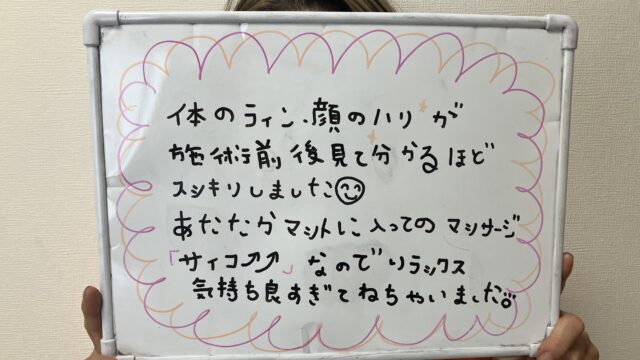 体のライン・顔のハリが
施術前後見て分かるほど
スッキリしました😊
あたたかマットに入ってのマッサージ
「サイコ⤴⤴」なのでリラックス
気持ち良すぎてねちゃいました。